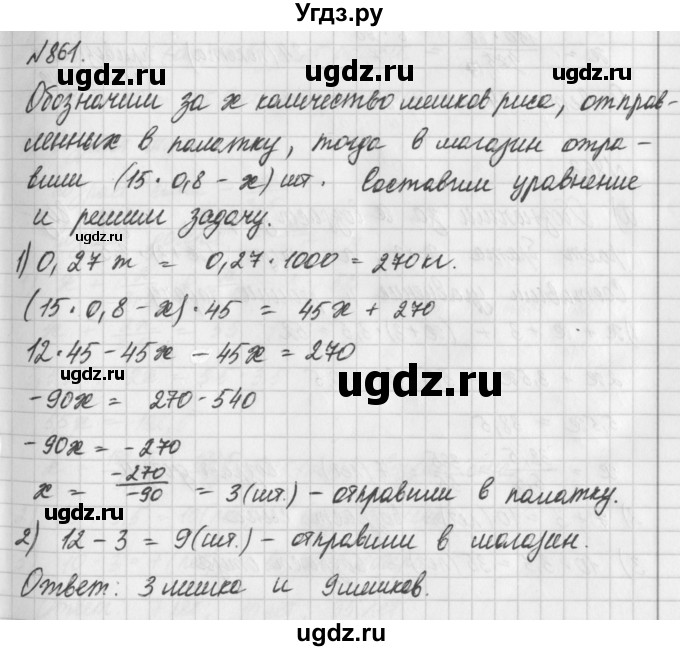 Угдз.ру
№861.
Обозначим за x количество мешков риса, отправ-
ленных в палатку, тогда в магазин отпра-
вили (15·0,8-x) шт. Составим уравнение
и решим задачу.
1) 0,27 т = 0,27·1000 = 270 кг.
(15·0,8-x)·45 = 45x + 270
12·45-45x - 45x = 270
-90x = 270-540
-90x = -270
x = -270/-90 = 3 (шт.) - отправили в палатку.
2) 12-3 = 9 (шт.) - отправили в магазин.
Ответ: 3 мешка и 9 мешков.
ugdz.ru
ugdz.ru
ugdz.ru
ugdz.ru
ugdz.ru
ugdz.ru
ugdz.ru
ugdz.ru
ugdz.ru
ugdz.ru
ugdz.ru
ugdz.ru